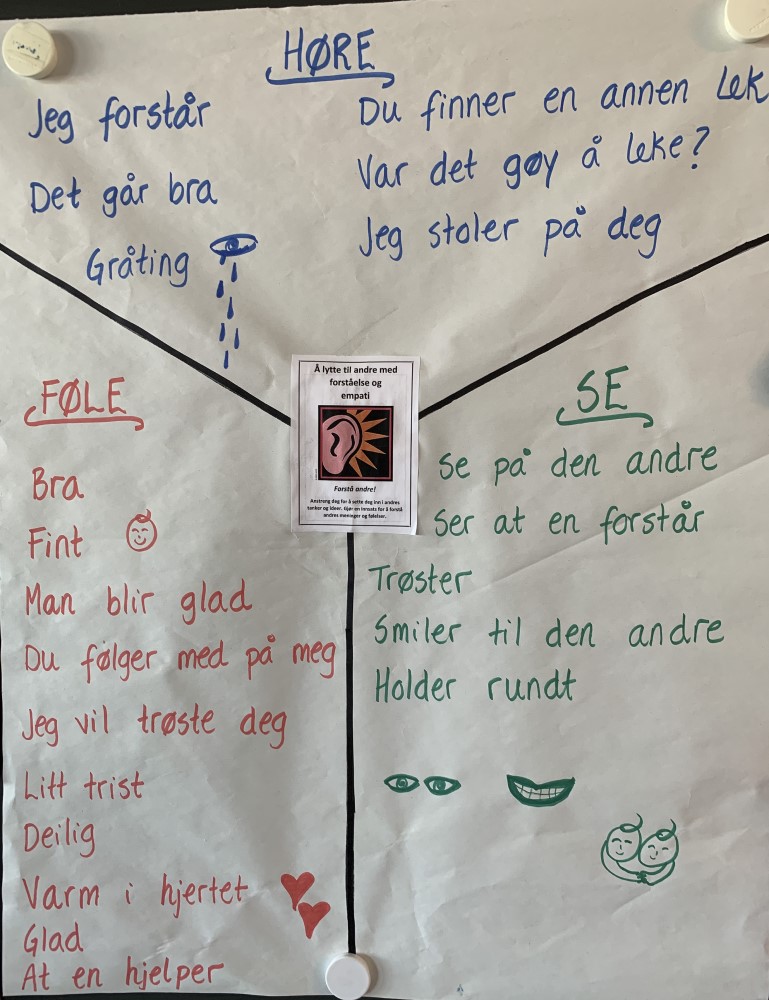 HØRE
Jeg forstår
Det går bra
Gråting
Du finner en annen lek
Var det gøy å leke?
Jeg stoler på deg
Å lytte til andre med
forståelse og
empati
Forstå andre!
Anstreng deg for å sette deg inn i andres
tanker og ideer. Gjør en innsats for å forstå
andres meninger og følelser.
FØLE
Bra
Fint
Man blir glad
Du følger med på meg
Jeg vil trøste deg
Litt trist
Deilig
Varm i hjertet
Glad
At en hjelper
SE
Se på den andre
Ser at en forstår
Trøster
Smiler til den andre
Holder rundt